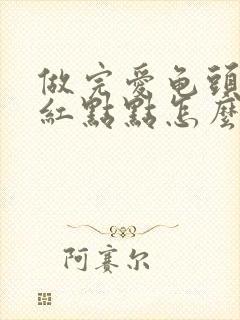 做完爱龟頭
紅點點怎麼
阿赛尔